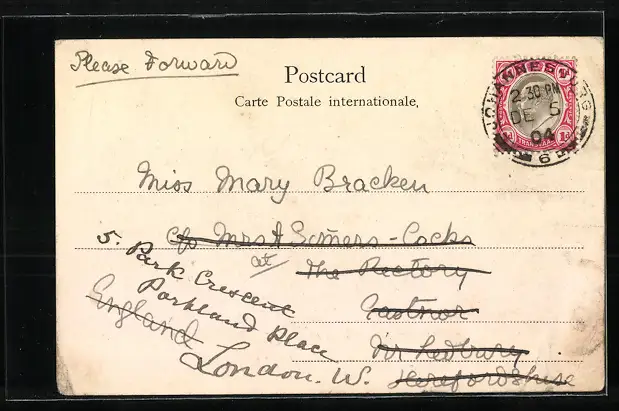 Please Forward
Postcard
Carte Postale internationale.
JOHANNESBURG
2. 30 PM
DE 5
04
6
TRANSVAAL
1d
Miss Mary Bracken
c/o Mrs H Somers-Cocks
at
The Rectory
Eastnor
Nr Ledbury
Herefordshire
England
5. Park Crescent
Parkland Place
London. W.